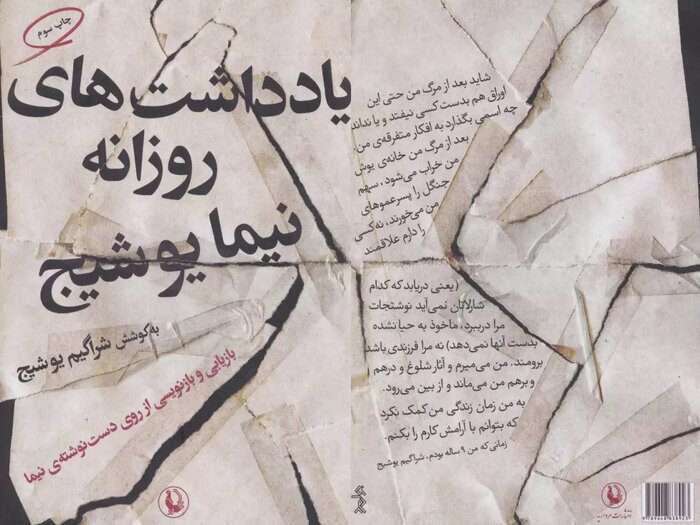 چاپ سوم
یادداشت‌های
روزانه
نیما یوشیج
به‌کوشش شراگیم یوشیج
بازیابی و بازنویسی از روی دست‌نوشته‌ی نیما
شاید بعد از مرگ من حتی این
اوراق هم بدست کسی نیفتد و یا نداند
چه اسمی بگذارد به افکار متفرقه‌ی من.
بعد از مرگ من خانه‌ی یوش
من خراب می‌شود، سهم
جنگل را پسرعموهای
من می‌خورند، نه‌کسی
را دارم علاقمند
(یعنی دریابد که کدام
شارلاتان نمی‌آید نوشتجات
مرا دربِبرد، ماخوذ به حیا نشده
بدست آنها نمی‌دهد) نه مرا فرزندی باشد
برومند. من می‌میرم و آثار شلوغ و درهم
و برهم من می‌ماند و از بین می‌رود.
به من زمان زندگی من کمک نکرد
که بتوانم با آرامش کارم را بکنم.
زمانی که من ۹ ساله بودم. شراگیم یوشیج